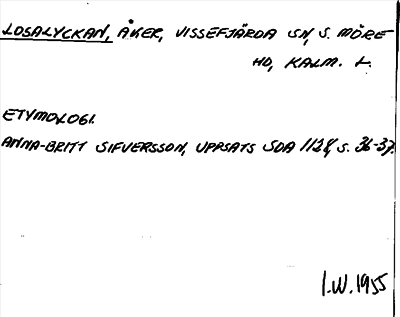 LOSALYCKAN, ÅKER, VISSEFJÄRDA SN, S. MÖRE
HD, KALM. L.
ETYMOLOGI.
ANNA-BRITT SIFVERSSON, UPPSATS SOA 1128, S. 36-37.
I.W. 1955